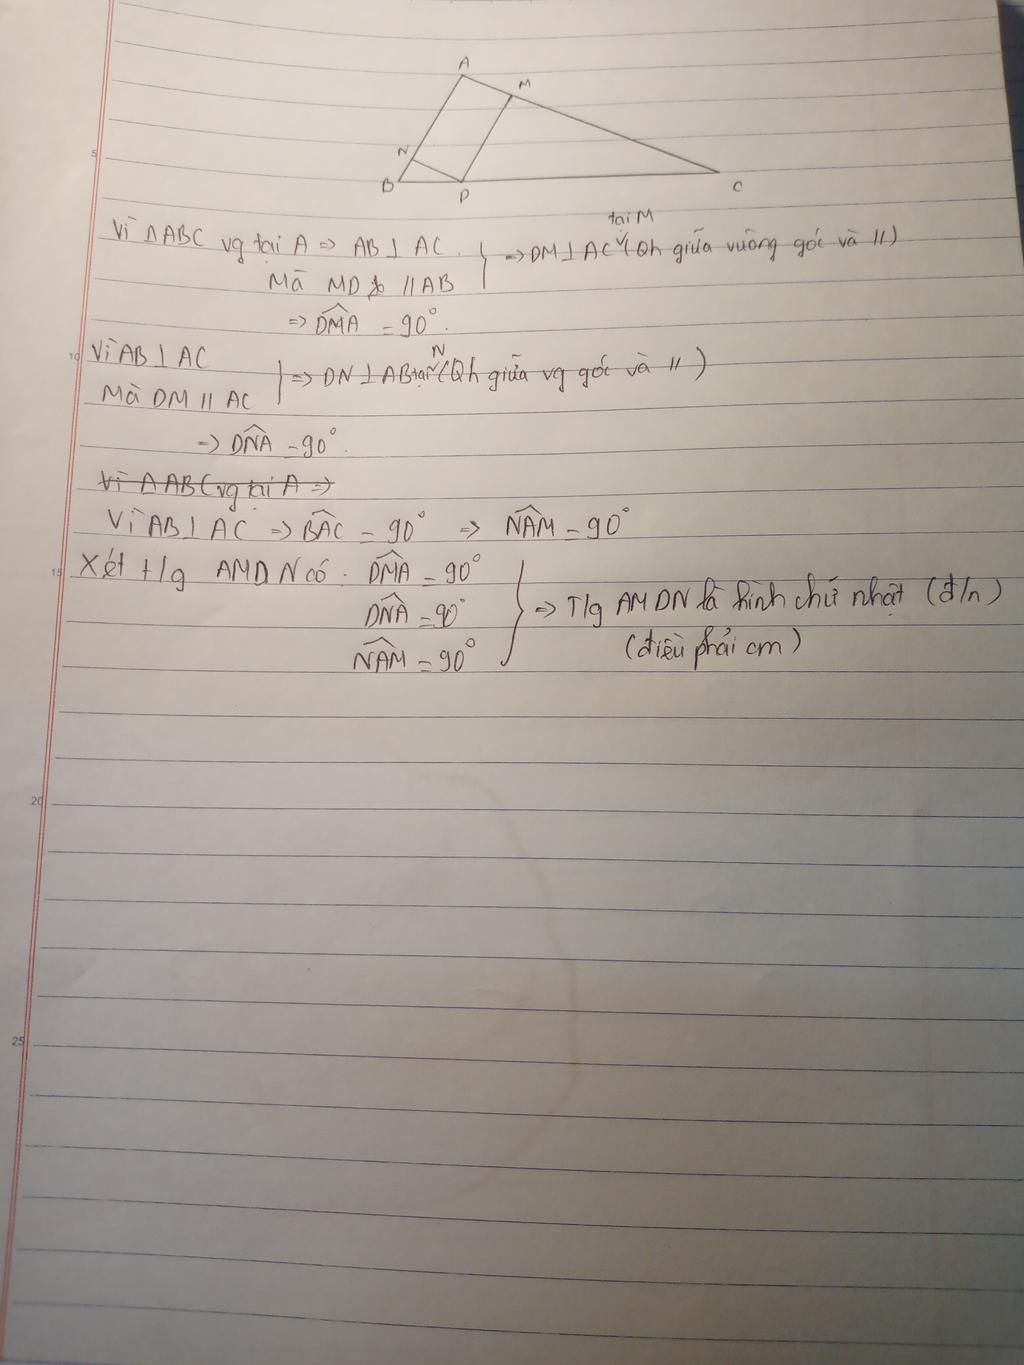 A
M
N
B
D
C
tại M
Vì ΔABC vg tại A => AB ⊥ AC. } => DM ⊥ AC (Qh giữa vuông góc và //)
Mà MD // AB
=> DMA = 90°.
Vì AB ⊥ AC
N
Mà DM // AC } => DN ⊥ AB tại (Qh giữa vg góc và //)
=> DNA = 90°.
Vì ΔABC vg tại A =>
Vì AB ⊥ AC => BAC = 90° => NAM = 90°
Xét t/g AMDN có: DMA = 90°
DNA = 90° } => T/g AMDN là hình chữ nhật (đ/n)
NAM = 90° (điều phải cm)
5
10
15
20
25